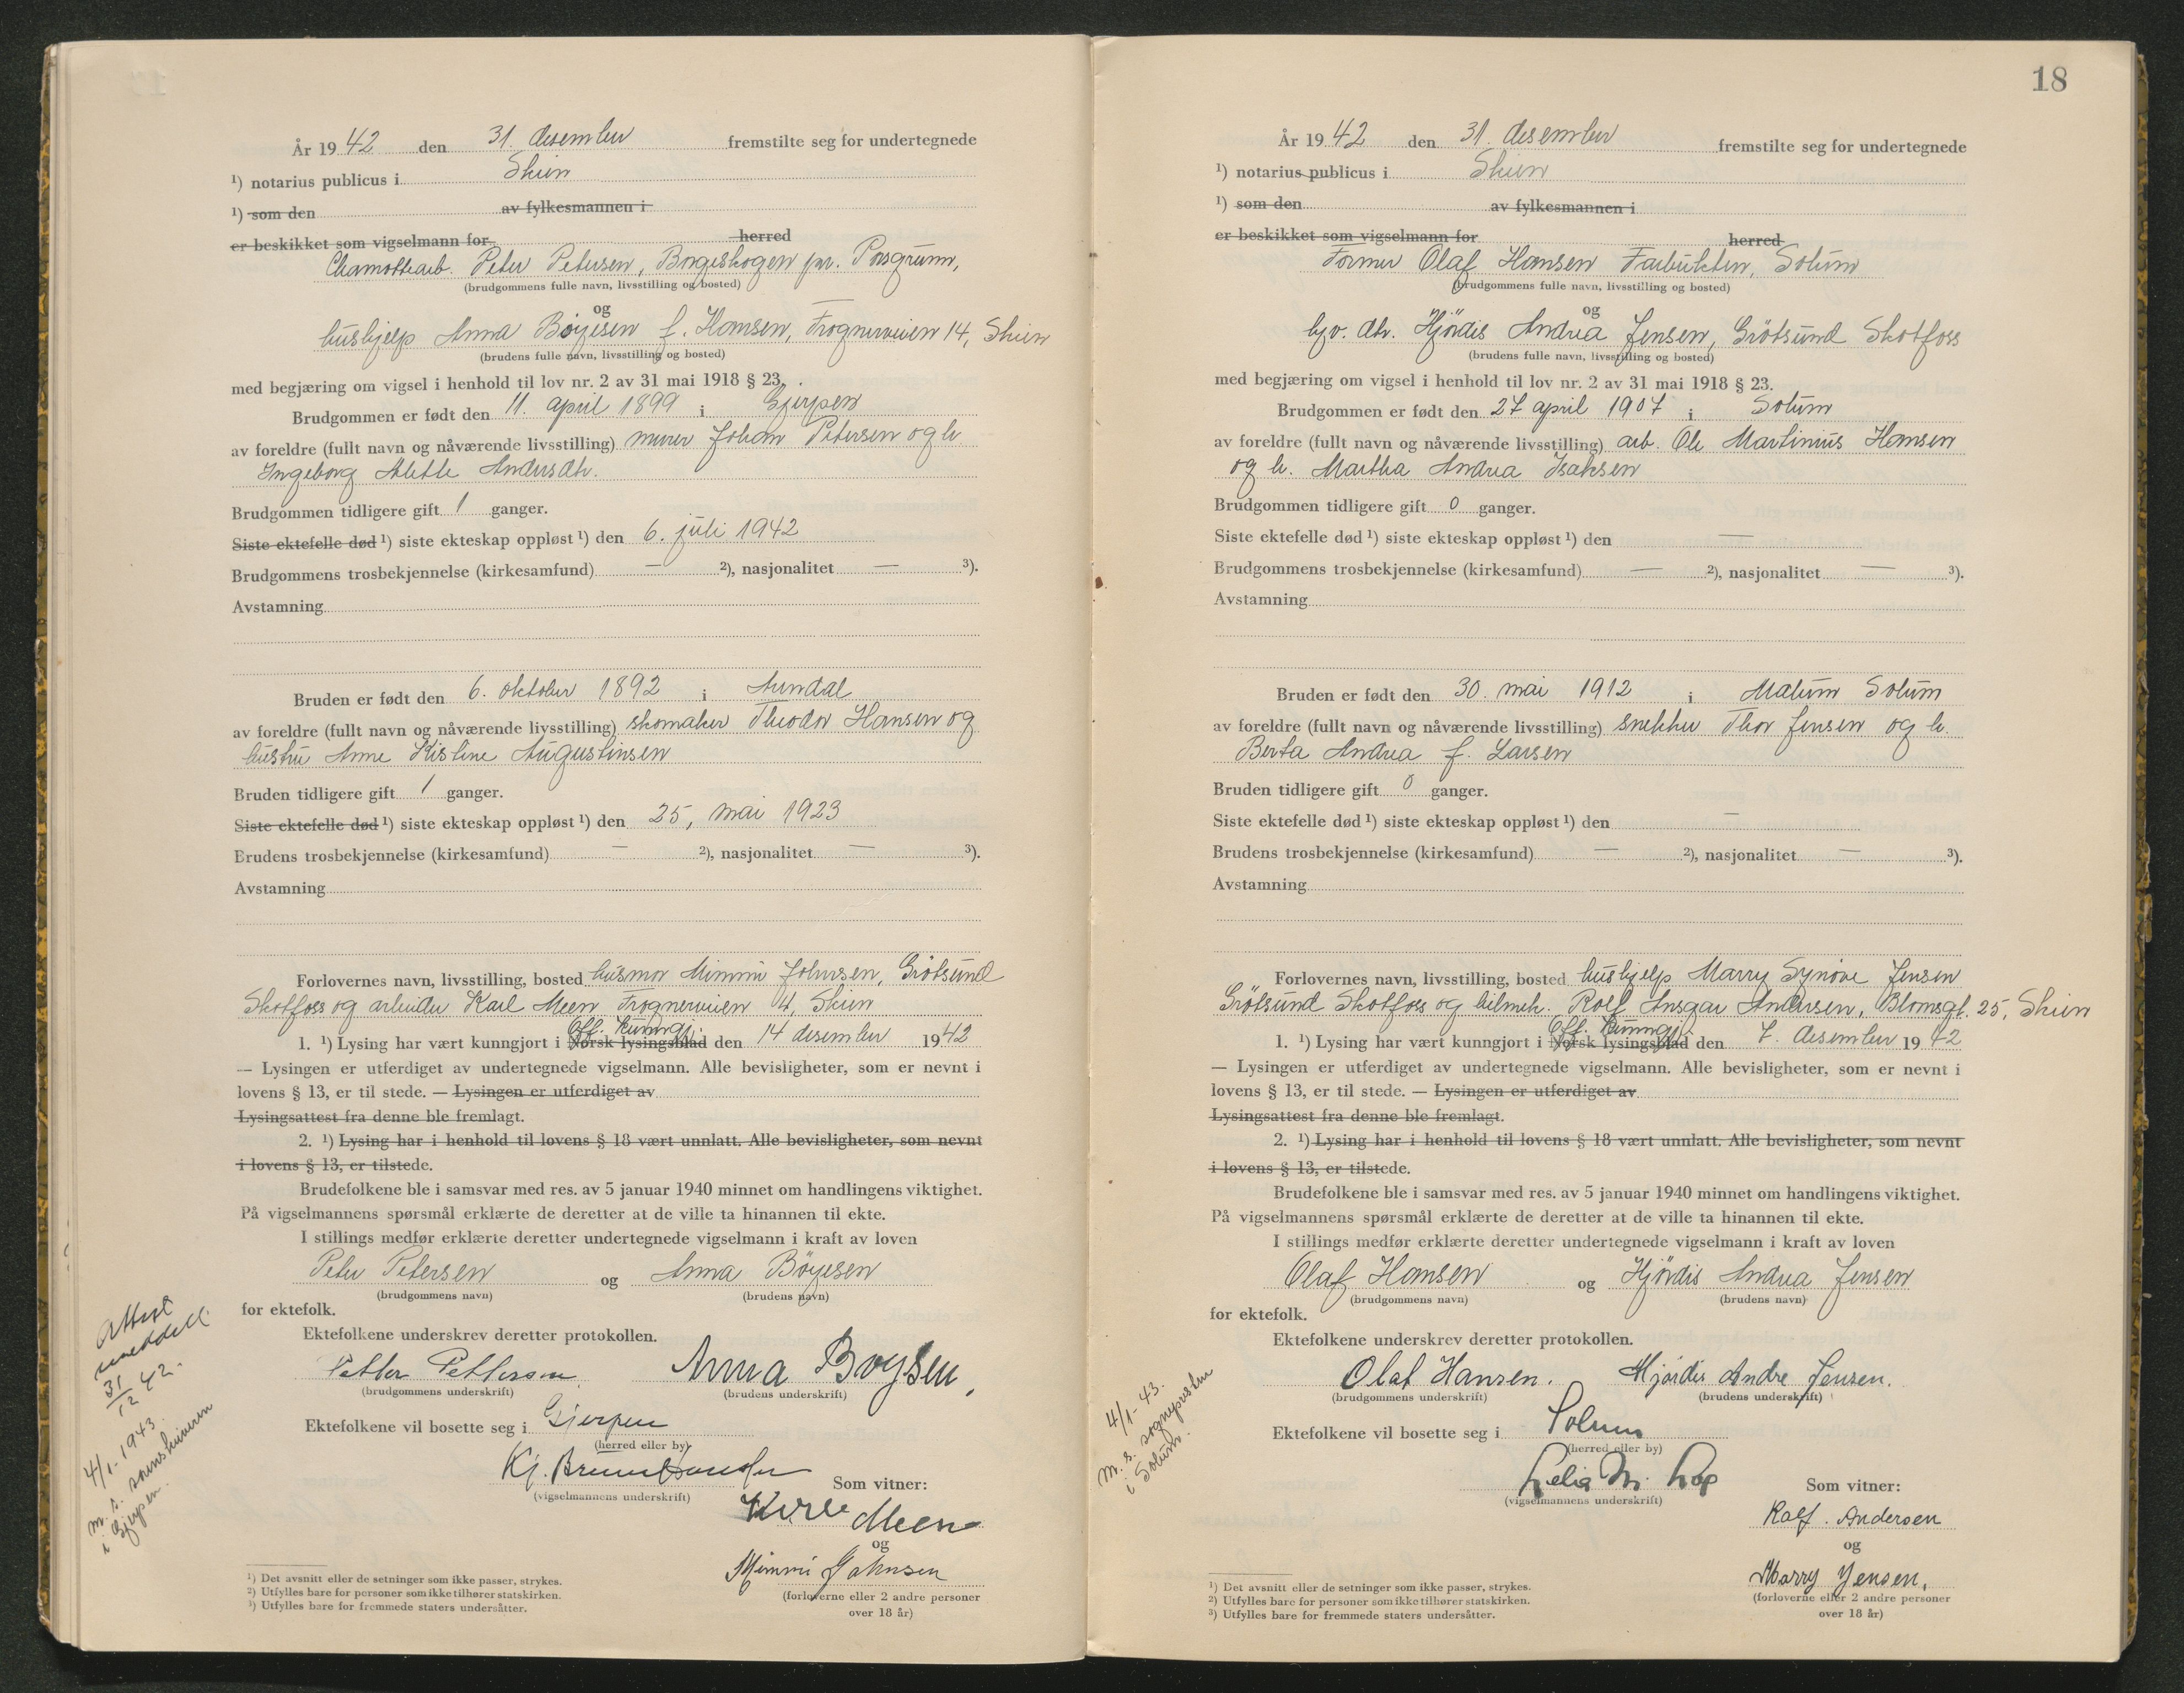 År 1942 den 31. desember fremstilte seg for undertegnede
¹) notarius publicus i Skien
¹) som den av fylkesmannen i
er beskikket som vigselmann for herred
Chamottearb. Peter Petersen, Borgeskogen pr. Porsgrunn,
(brudgommens fulle navn, livsstilling og bosted)
og
hushjelp Anna Böyesen f. Hansen, Frognerveien 14, Skien
(brudens fulle navn, livsstilling og bosted)
med begjæring om vigsel i henhold til lov nr. 2 av 31 mai 1918 § 23.
Brudgommen er født den 11. april 1899 i Gjerpen
av foreldre (fullt navn og nåværende livsstilling) murer Johan Petersen og h
Ingeborg Alette Andersdtr.
Brudgommen tidligere gift 1 ganger.
Siste ektefelle død ¹) siste ekteskap oppløst ¹) den 6. juli 1942
Brudgommens trosbekjennelse (kirkesamfund) — ²), nasjonalitet — ³).
Avstamning
Bruden er født den 6. oktober 1892 i Arendal
av foreldre (fullt navn og nåværende livsstilling) skomaker Theodor Hansen og
hustru Anne Kistine Augustinsen
Bruden tidligere gift 1 ganger.
Siste ektefelle død ¹) siste ekteskap oppløst ¹) den 25, mai 1923
Brudens trosbekjennelse (kirkesamfund) — ²), nasjonalitet — ³).
Avstamning
Forlovernes navn, livsstilling, bosted husmor Mimmi Johnsen, Grötsund
Skotfoss og arbeider Karl Meen Frognerveien 14, Skien
Off. Kunngj.
1. ¹) Lysing har vært kunngjort i Norsk lysingsblad den 14 desember 1942
— Lysingen er utferdiget av undertegnede vigselmann. Alle bevisligheter, som er nevnt i
lovens § 13, er til stede. — Lysingen er utferdiget av
Lysingsattest fra denne ble fremlagt.
2. ¹) Lysing har i henhold til lovens § 18 vært unnlatt. Alle bevisligheter, som nevnt
i lovens § 13, er tilstede.
Brudefolkene ble i samsvar med res. av 5 januar 1940 minnet om handlingens viktighet.
På vigselmannens spørsmål erklærte de deretter at de ville ta hinannen til ekte.
I stillings medfør erklærte deretter undertegnede vigselmann i kraft av loven
Peter Petersen og Anna Böyesen
(brudgommens navn) (brudens navn)
for ektefolk.
Ektefolkene underskrev deretter protokollen.
Petter Pettersen. Anna Boysen,
(brudgommens underskrift) (brudens underskrift)
Ektefolkene vil bosette seg i Gjerpen
(herred eller by)
Kj.
(vigselmannens underskrift) Som vitner:
Meen
og
Mimmi Johnsen
(forloverne eller 2 andre personer
over 18 år)
¹) Det avsnitt eller de setninger som ikke passer, strykes.
²) Utfylles bare for personer som ikke tilhører statskirken.
³) Utfylles bare for fremmede staters undersåtter.
Attest
meddelt
31/12 42.
4/1-1943.
m. s.
i Gjerpen.
18
År 1942 den 31. desember fremstilte seg for undertegnede
¹) notarius publicus i Skien
¹) som den av fylkesmannen i
er beskikket som vigselmann for herred
Former Olaf Hansen Farbukten, Solum
(brudgommens fulle navn, livsstilling og bosted)
og
hjv. dtr. Hjördis Andrea Jensen, Grötsund Skotfoss
(brudens fulle navn, livsstilling og bosted)
med begjæring om vigsel i henhold til lov nr. 2 av 31 mai 1918 § 23.
Brudgommen er født den 27 april 1907 i Solum
av foreldre (fullt navn og nåværende livsstilling) arb. Ole Martinius Hansen
og h. Martha Andrea Isaksen
Brudgommen tidligere gift 0 ganger.
Siste ektefelle død ¹) siste ekteskap oppløst ¹) den —
Brudgommens trosbekjennelse (kirkesamfund) — ²), nasjonalitet — ³).
Avstamning
Bruden er født den 30. mai 1912 i Mælum Solum
av foreldre (fullt navn og nåværende livsstilling) snekker Thor Jensen og h.
Berta Andrea f. Larsen
Bruden tidligere gift 0 ganger.
Siste ektefelle død ¹) siste ekteskap oppløst ¹) den —
Brudens trosbekjennelse (kirkesamfund) — ²), nasjonalitet — ³).
Avstamning
Forlovernes navn, livsstilling, bosted hushjelp Marry Synöve Jensen
Grötsund Skotfoss og bilmek. Rolf Ansgar Andersen, Blomsgt. 25, Skien
Off. Kunngj.
1. ¹) Lysing har vært kunngjort i Norsk lysingsblad den 7. desember 1942
— Lysingen er utferdiget av undertegnede vigselmann. Alle bevisligheter, som er nevnt i
lovens § 13, er til stede. — Lysingen er utferdiget av
Lysingsattest fra denne ble fremlagt.
2. ¹) Lysing har i henhold til lovens § 18 vært unnlatt. Alle bevisligheter, som nevnt
i lovens § 13, er tilstede.
Brudefolkene ble i samsvar med res. av 5 januar 1940 minnet om handlingens viktighet.
På vigselmannens spørsmål erklærte de deretter at de ville ta hinannen til ekte.
I stillings medfør erklærte deretter undertegnede vigselmann i kraft av loven
Olaf Hansen og Hjördis Andrea Jensen
(brudgommens navn) (brudens navn)
for ektefolk.
Ektefolkene underskrev deretter protokollen.
Olaf Hansen. Hjördis Andre Jensen.
(brudgommens underskrift) (brudens underskrift)
Ektefolkene vil bosette seg i Solum
(herred eller by)
Lelia M.
(vigselmannens underskrift) Som vitner:
Rolf. Andersen
og
Marry Jensen,
(forloverne eller 2 andre personer
over 18 år)
¹) Det avsnitt eller de setninger som ikke passer, strykes.
²) Utfylles bare for personer som ikke tilhører statskirken.
³) Utfylles bare for fremmede staters undersåtter.
4/1-43.
m. s. sognepresten
i Solum.